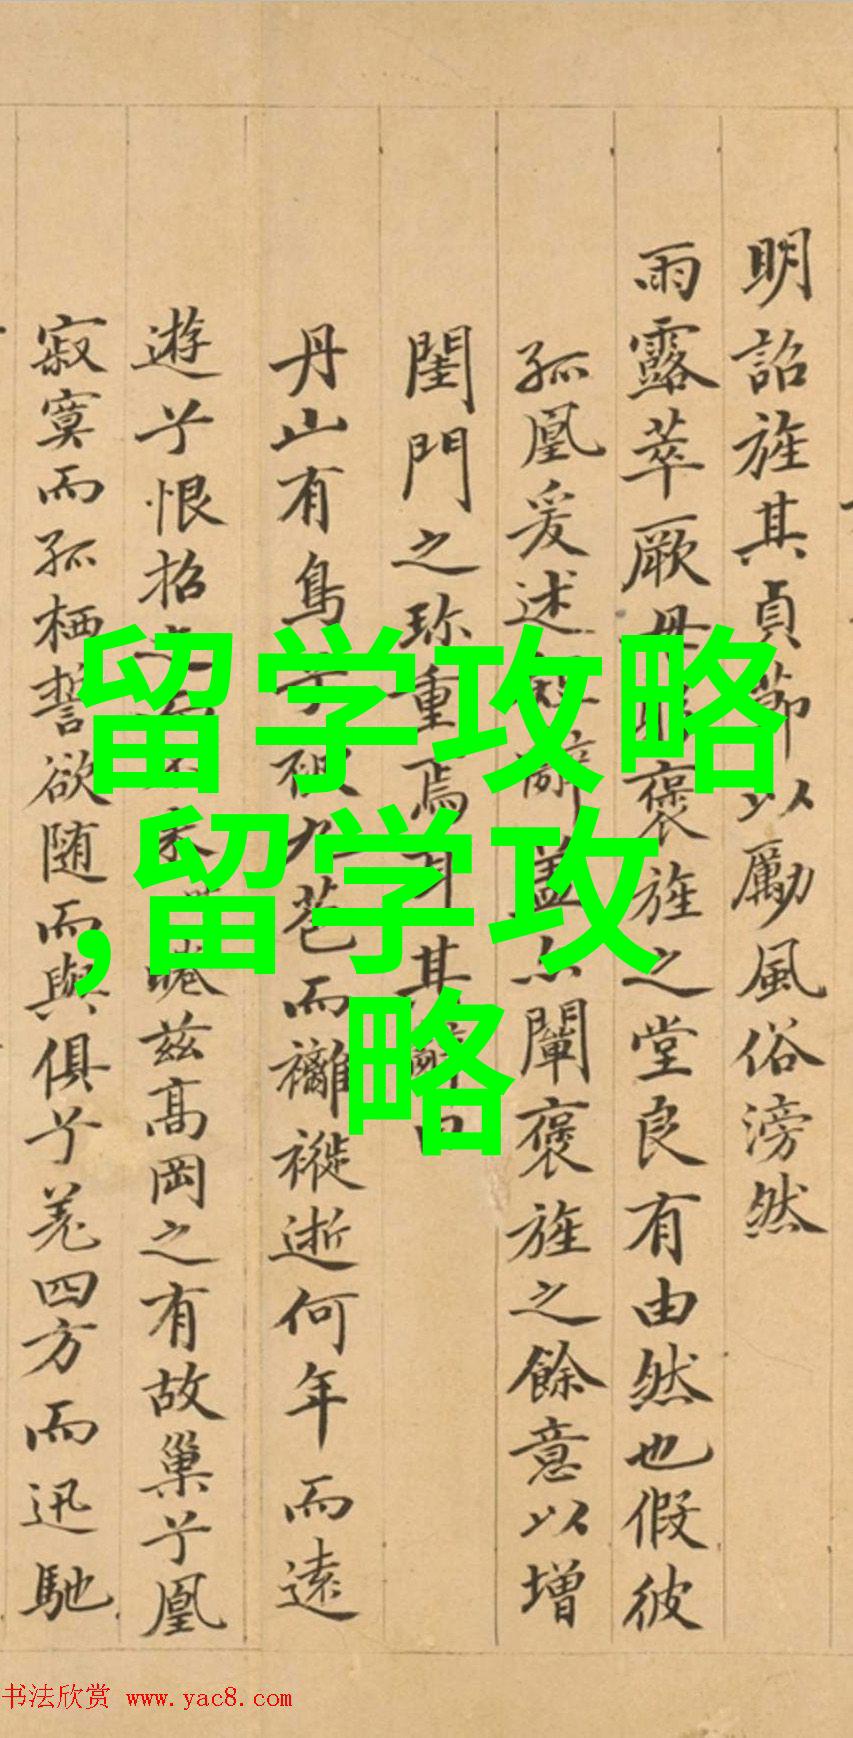 明詔旌其貞節以勵風俗滂然
雨露萃厥母褒旌之堂良有由然也假彼
孤凰爰述辭蓋亦闡褒旌之餘意以增
閨門之珎重焉其辭曰
丹山有鳥兮被九苞而褵褷逝何年而遠
遊兮恨招之而不來睠兹高岡之有故巢兮凰
寂寞而孤栖誓欲随而與俱兮羌四方而迅馳
留学攻略
,留学攻
略
书法欣赏 www.yac8.com